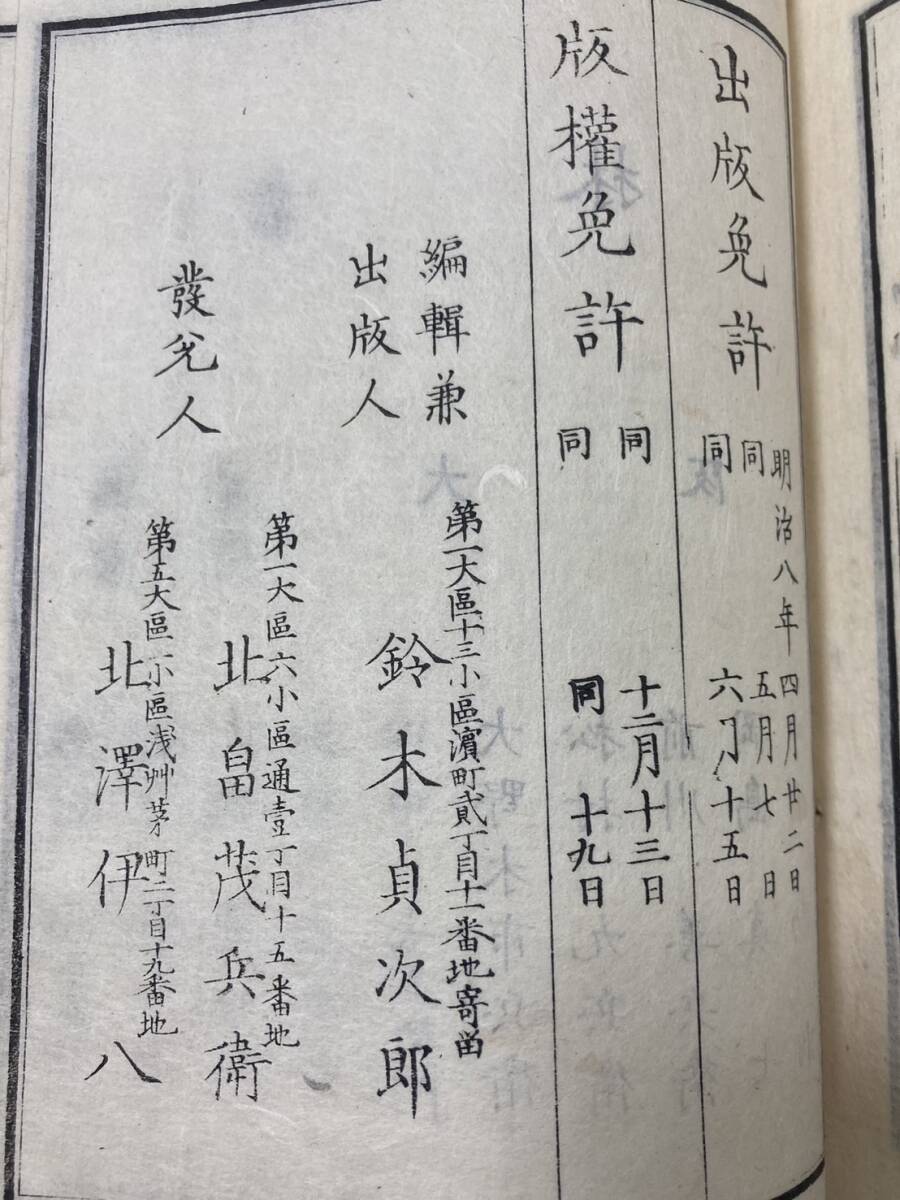 出版免許
明治八年四月廿二日
同 五月七日
同 六月十五日
版權免許
同 十二月十三日
同 同 十九日
編輯兼
出版人
第一大區十三小區濱町貳丁目十一番地寄留
鈴木貞次郎
發兌人
第一大區六小區通壹丁目十五番地
北畠茂兵衛
第五大區一小區浅艸茅町二丁目十九番地
北澤伊八